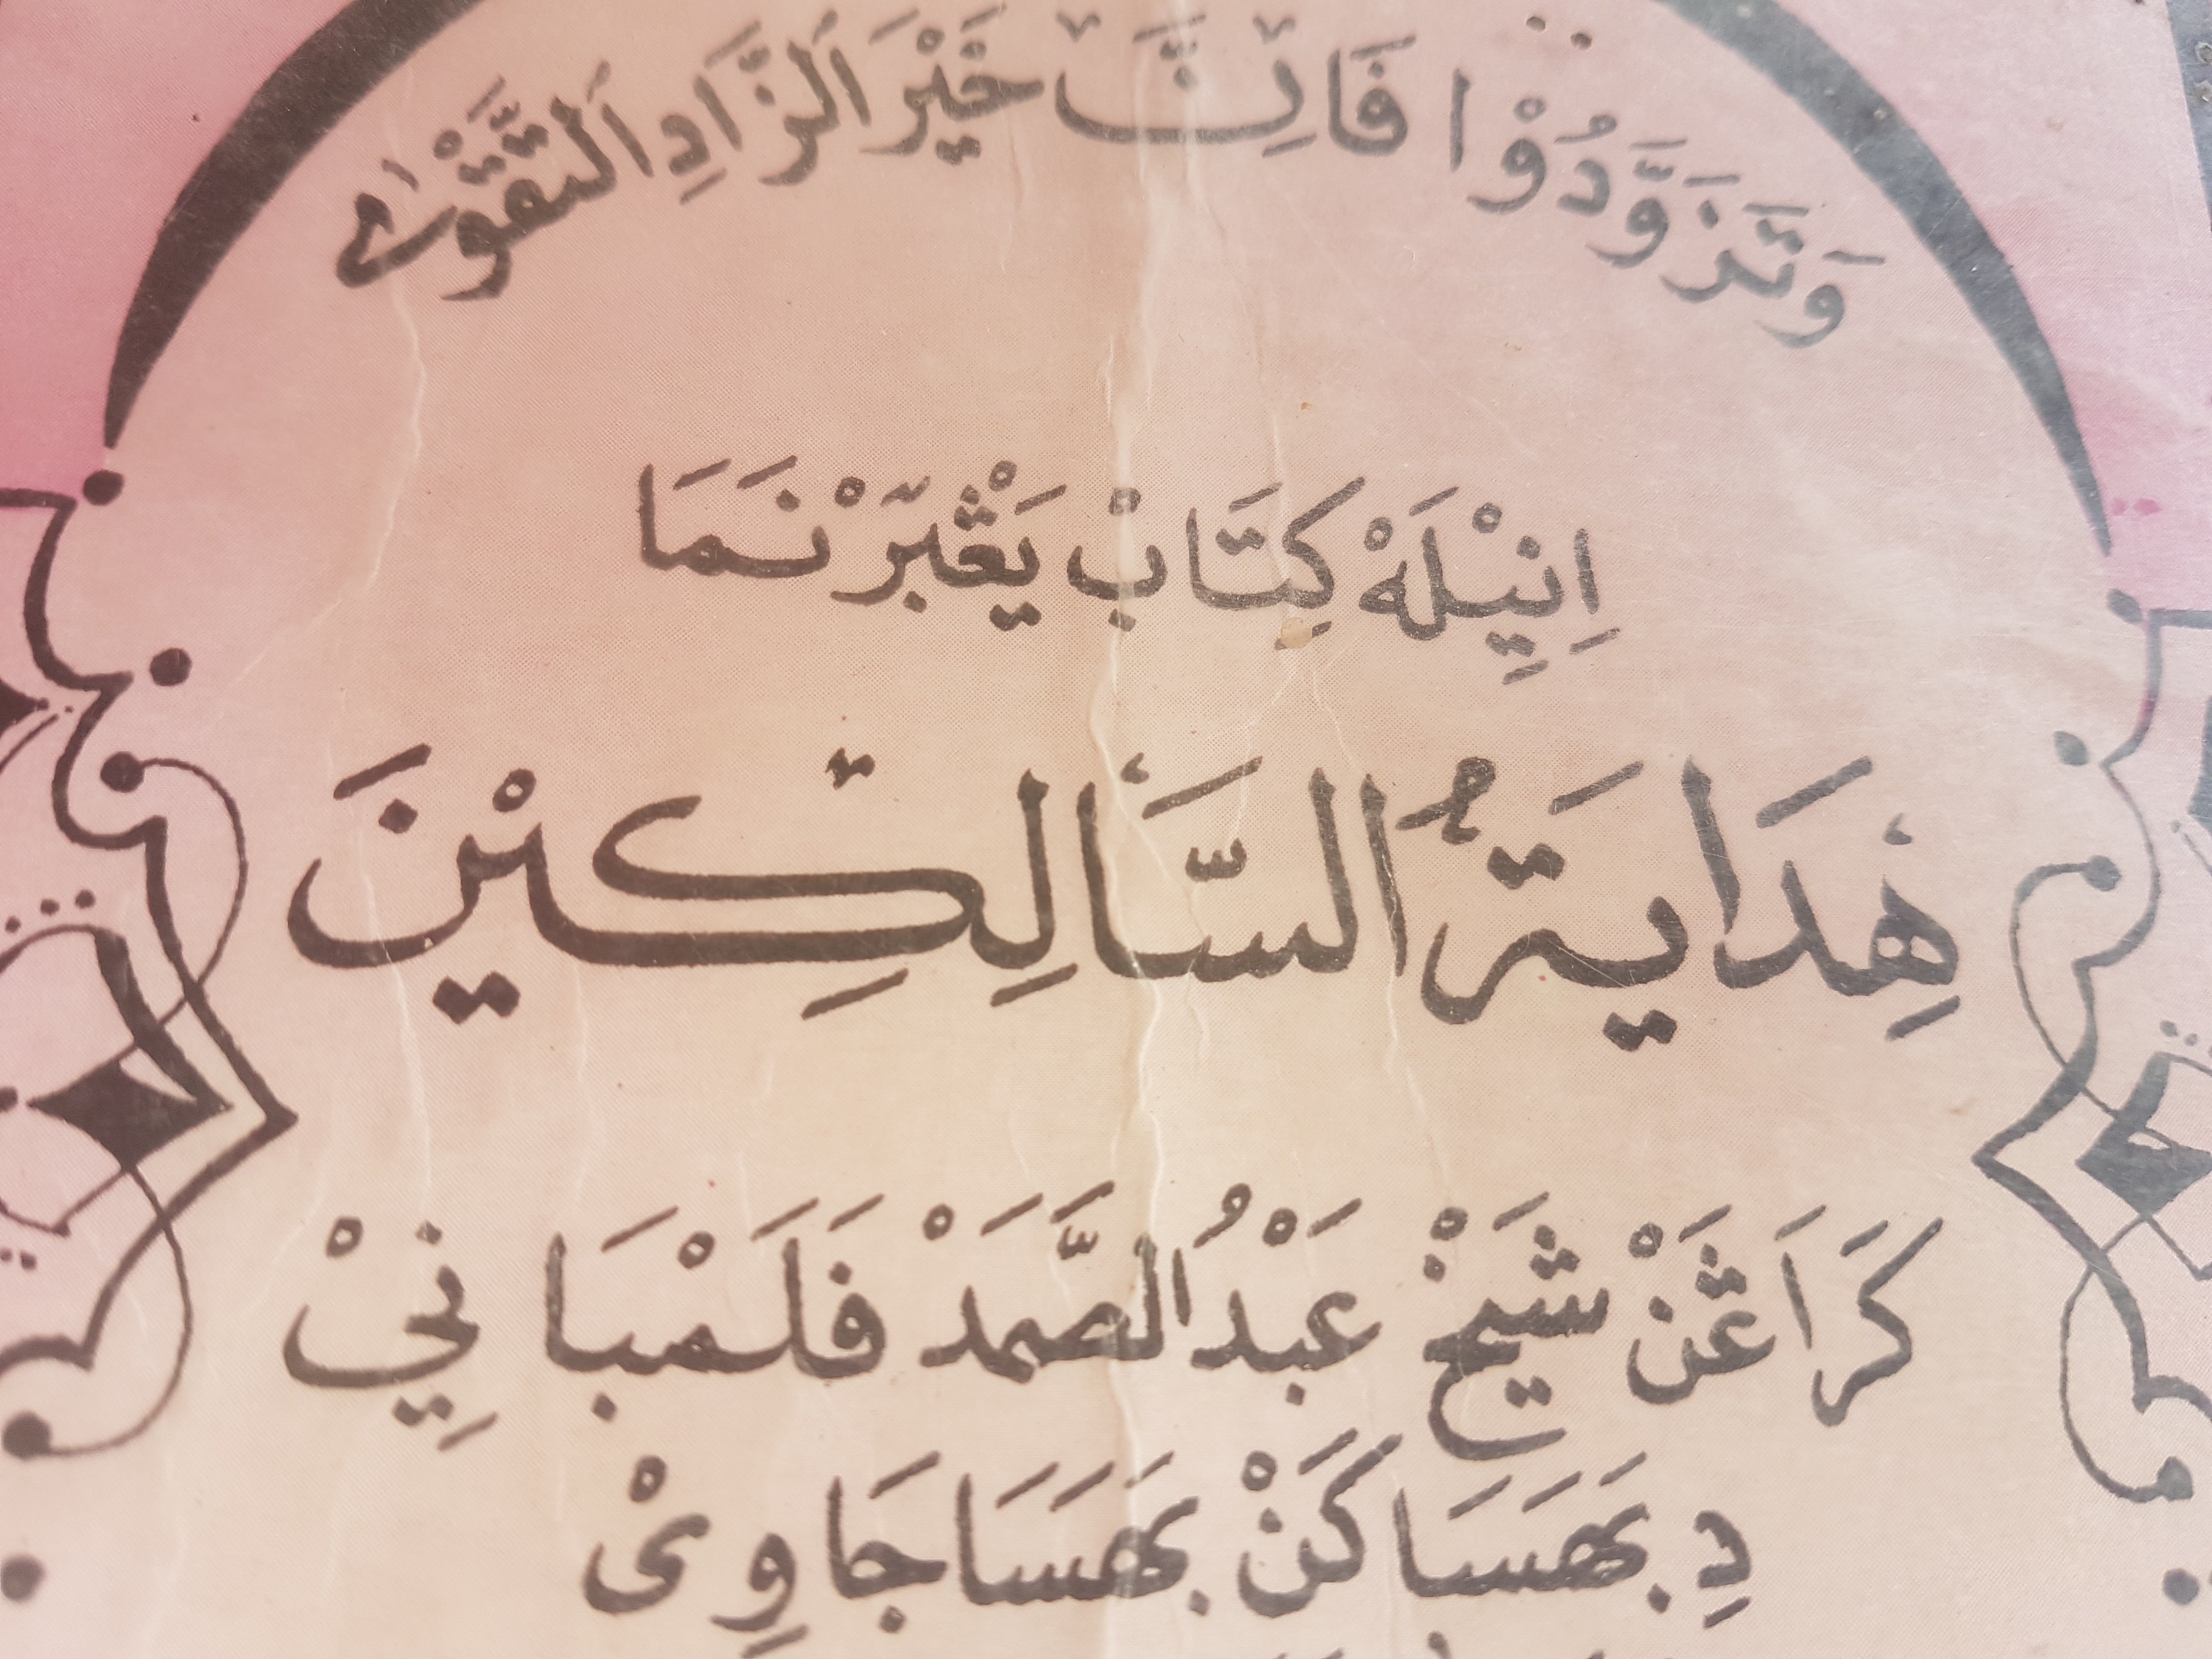 وَتَزَوَّدُوْا فَاِنَّ خَيْرَ الزَّادِ التَّقْوٰى
اِنِيْلَهْ كِتَابْ يَڠْبَرْنَمَا
هِدَايَةُ السَّالِكِيْنَ
كَرَاڠَنْ شَيْخْ عَبْدُ الصَّمَدْ فَلَمْبَانِيْ
دِبَهَسَاكَنْ بَهَسَا جَاوِىْ